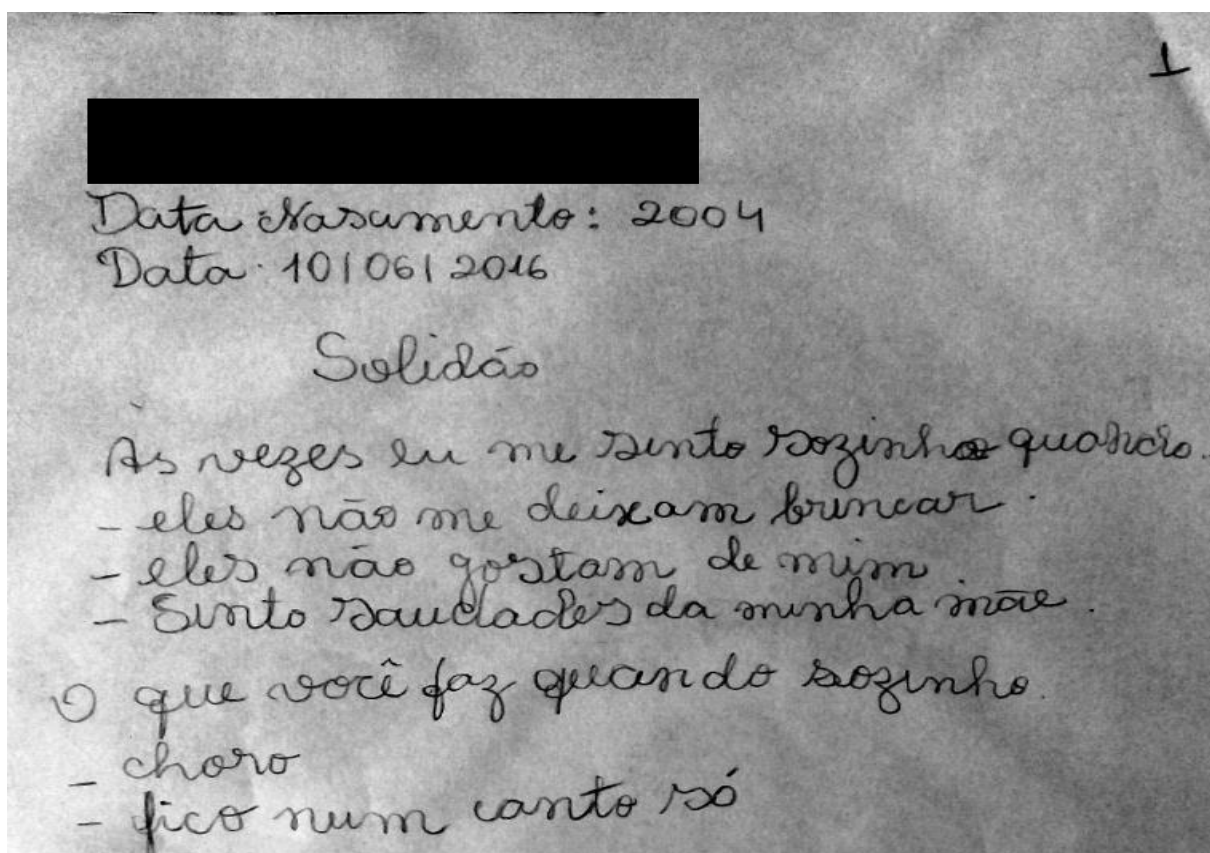 1
Data Nascimento: 2004
Data 10/06/2016
Solidão
Às vezes eu me sinto sozinho quando.
- eles não me deixam brincar.
- eles não gostam de mim.
- Sinto saudades da minha mãe.
O que você faz quando sozinho.
- choro
- fico num canto só